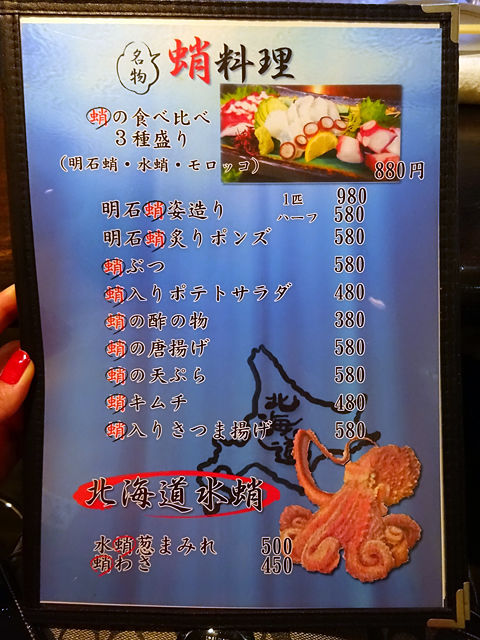 名物
蛸料理
蛸の食べ比べ
３種盛り
（明石蛸・水蛸・モロッコ）
880円
明石蛸姿造り 1匹 980
ハーフ 580
明石蛸炙りポンズ 580
蛸ぶつ 580
蛸入りポテトサラダ 480
蛸の酢の物 380
蛸の唐揚げ 580
蛸の天ぷら 580
蛸キムチ 480
蛸入りさつま揚げ 580
北海道
北海道水蛸
水蛸葱まみれ 500
蛸わさ 450